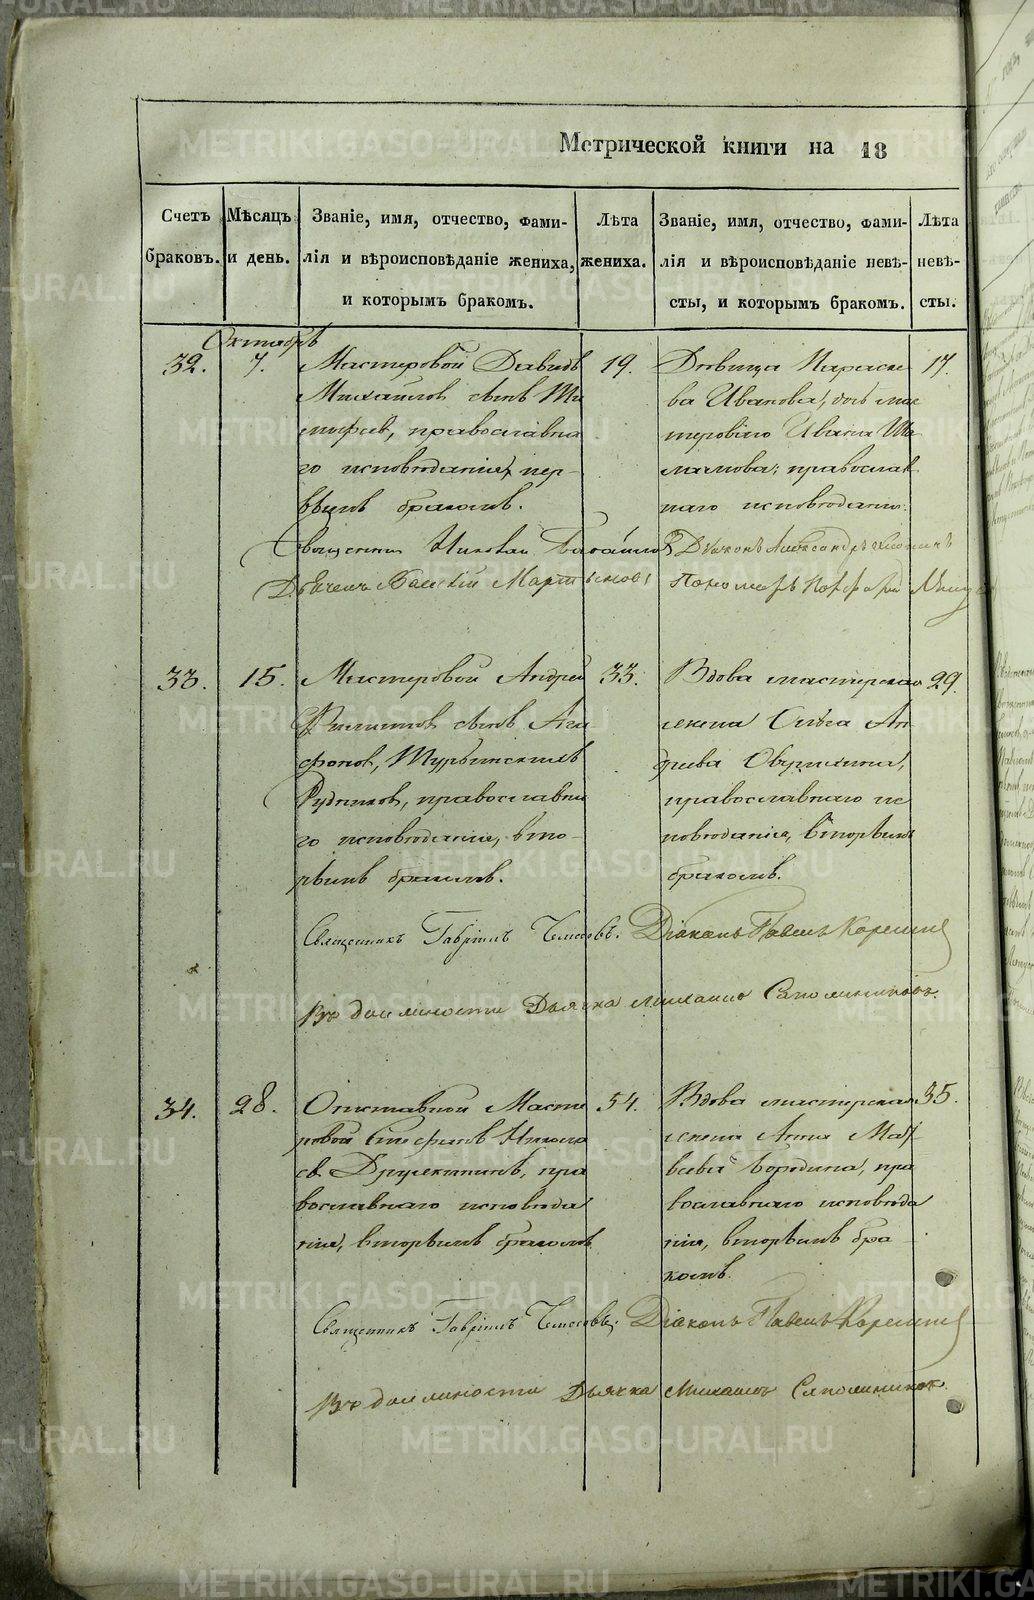 Метрической книги на 18
Счетъ браковъ.
Мѣсяцъ и день.
Званіе, имя, отчество, фами-
лія и вѣроисповѣданіе жениха,
и которымъ бракомъ.
Лѣта жениха.
Званіе, имя, отчество, фами-
лія и вѣроисповѣданіе невѣ-
сты, и которымъ бракомъ.
Лѣта невѣ-
сты.
Октябрь
32.
7.
Мастеровой Давидъ
Михайловъ сынъ
православна
го исповѣданія, пер-
вымъ бракомъ.
19.
Дѣвица Параске
ва Иванова, дочь мас
терового Ивана
православ
наго исповѣданія.
17.
Священникъ Николай Діаконъ Александръ
Дьячекъ Мартыновъ Пономарь Порфирій
33.
15.
Мастеровой Андрей
Филиповъ сынъ Ага
фоновъ, Турьинскихъ
Рудниковъ, православна
го исповѣданія, вто-
рымъ бракомъ.
33.
Вдова мастерская
женка Ольга Ан
дреева
православнаго ис
повѣданія, вторымъ
бракомъ.
29.
Священникъ Гавріилъ Діаконъ Павелъ Корелинъ
Въ должности Дьячка Михаилъ Сапожниковъ.
34.
28.
Отставной Масте
ровой Никола
евъ пра
вославнаго исповѣда
нія, вторымъ бракомъ
54.
Вдова мастерская
женка Анна Мат
веева Бородина, пра
вославнаго исповѣда
нія, вторымъ бра
комъ.
35.
Священникъ Гавріилъ Діаконъ Павелъ Корелинъ
Въ должности Дьячка Михаилъ Сапожниковъ.
METRIKI.GASO-URAL.RU